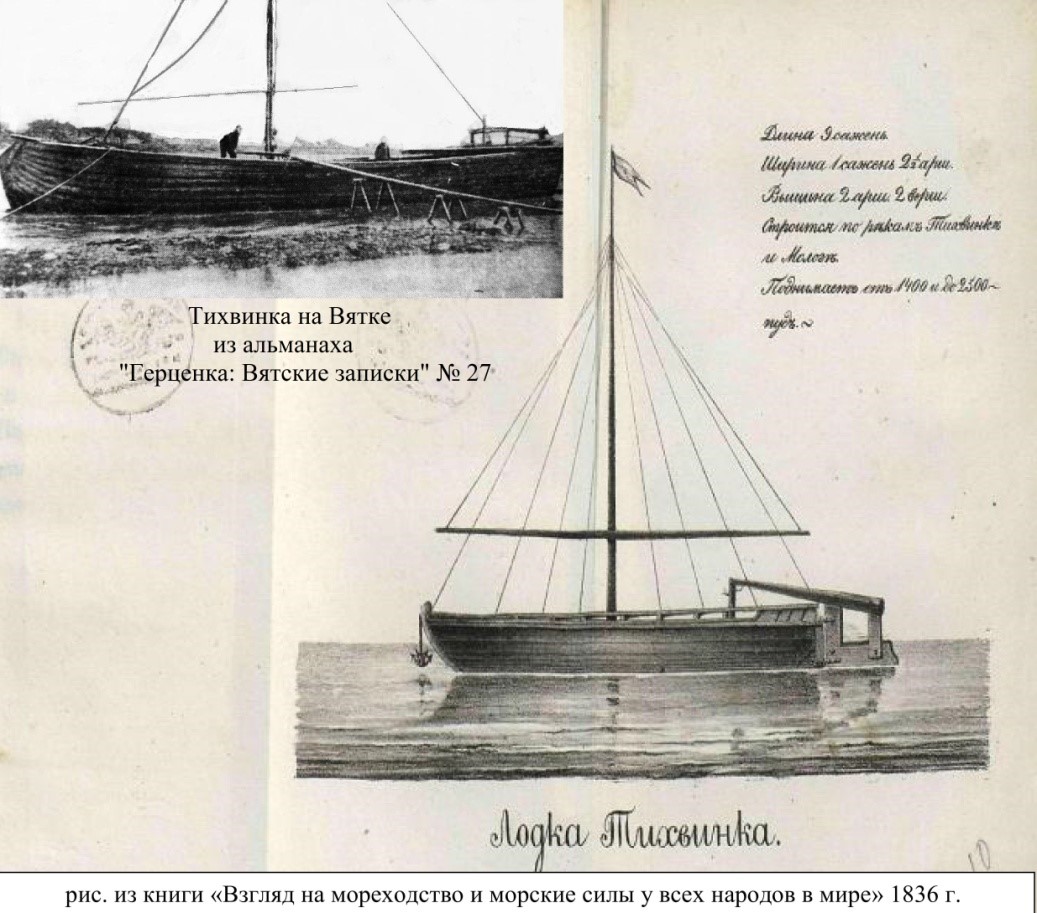 Длина 9 сажень
Ширина 1 сажень 2½ арш.
Вышина 2 арш. 2 верш.
Строится по рѣкамъ Тихвинкѣ
и Мологѣ.
Поднимаетъ отъ 1400 и до 2500
пудъ.
Тихвинка на Вятке
из альманаха
"Герценка: Вятские записки" № 27
Лодка Тихвинка.
10
рис. из книги «Взгляд на мореходство и морские силы у всех народов в мире» 1836 г.